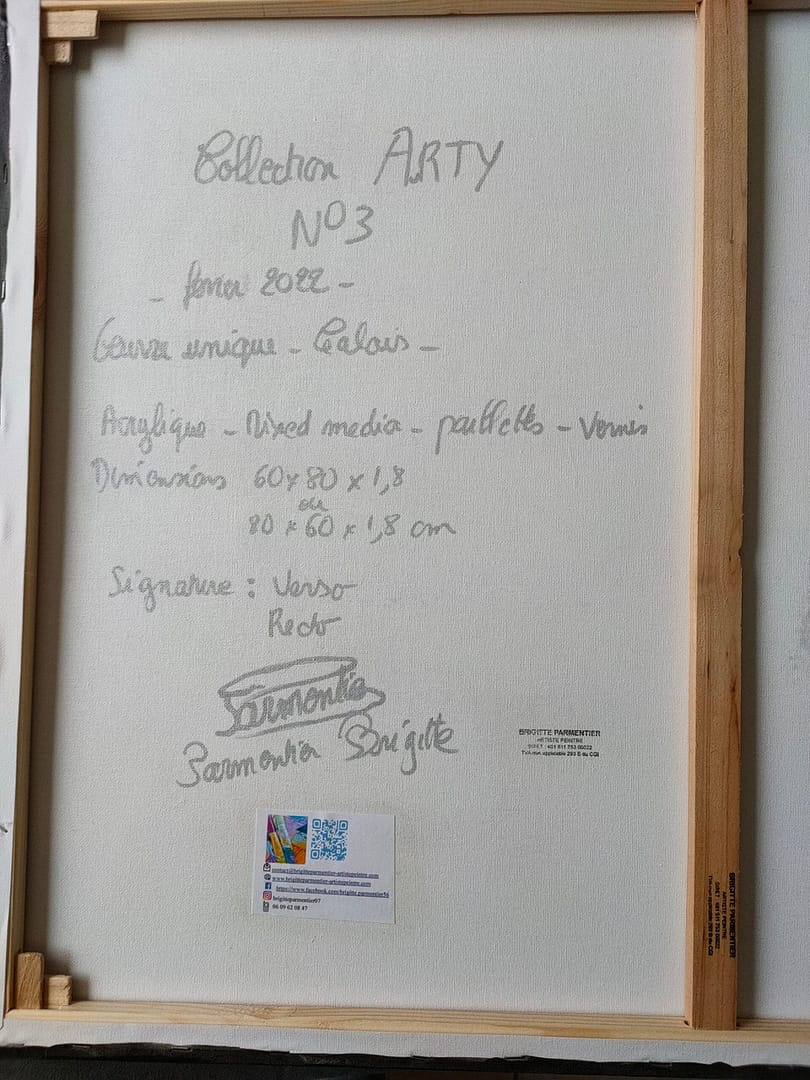 Collection ARTY
N°3
- février 2022 -
Oeuvre unique - Calais -
Acrylique - Mixed media - paillettes - Vernis
Dimensions 60 x 80 x 1,8
ou
80 x 60 x 1,8 cm
Signature : Verso
Recto
Parmentier
Parmentier Brigitte
BRIGITTE PARMENTIER
ARTISTE PEINTRE
TVA non applicable 293 B du CGI
contact@brigitteparmentier-artistepeintre.com
www.brigitteparmentier-artistepeintre.com
https://www.facebook.com/brigitte.parmentier56
brigitteparmentier07
06 09 62 08 47
BRIGITTE PARMENTIER
ARTISTE PEINTRE
TVA non applicable 293 B du CGI